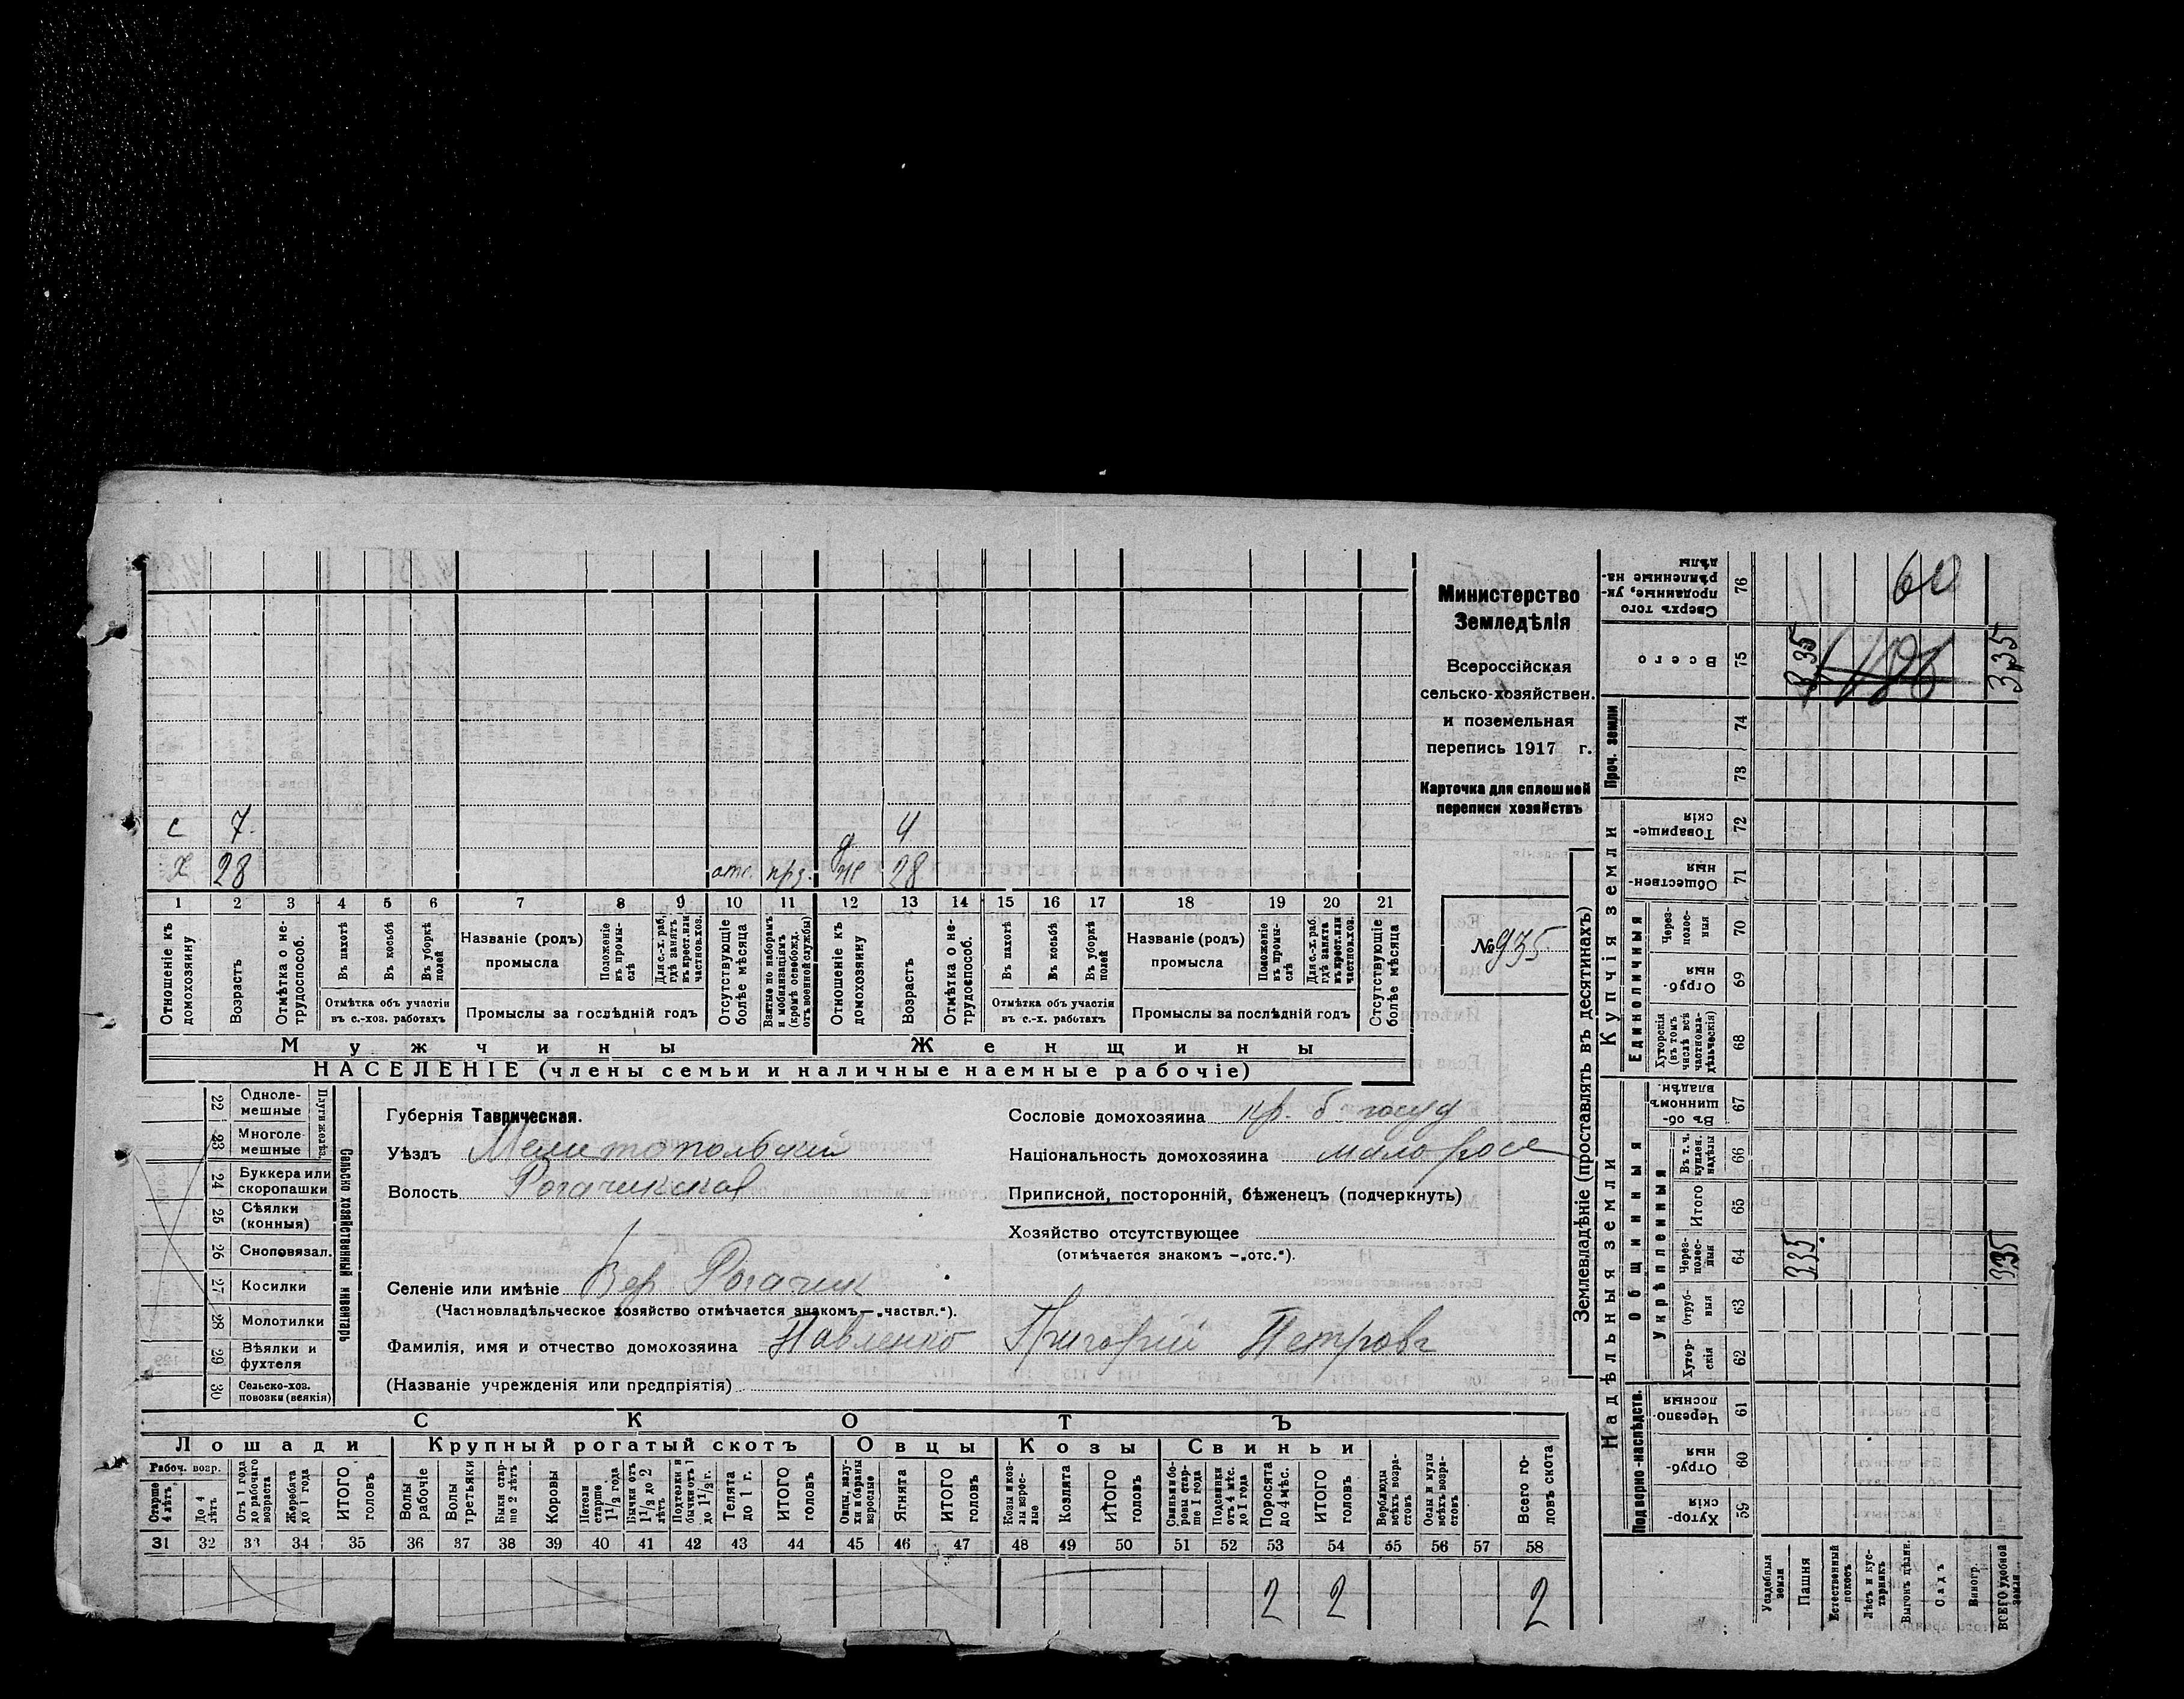 Министерство
Земледѣлія
Всероссійская
сельско-хозяйствен.
и поземельная
перепись 1917 г.
Карточка для сплошной
переписи хозяйствъ
№ 935
с 7. д 4
х 28 отс. прз. же 28
1 2 3 4 5 6 7 8 9 10 11 12 13 14 15 16 17 18 19 20 21
Отношеніе къ домохозяину
Возрасть
Отмѣтка о не-трудоспособ.
Въ пахотѣ
Въ косьбѣ
Въ уборкѣ полей
Отмѣтка объ участіи въ с.-хоз. работахъ
Названіе (родъ) промысла
Положеніе въ промы-слѣ
Для с.-х. раб. гдѣ занятъ въ крест. или частнов. хоз.
Промыслы за послѣдній годъ
Отсутствующіе болѣе мѣсяца
Взятые по наборамъ и мобилизаціямъ (кромѣ освобожд. отъ военной службы)
Отношеніе къ домохозяину
Возрастъ
Отмѣтка о не-трудоспособ.
Въ пахотѣ
Въ косьбѣ
Въ уборкѣ полей
Отмѣтка объ участіи въ с.-х. работахъ
Названіе (родъ) промысла
Положеніе въ промы-слѣ
Для с.-х. раб. гдѣ занята въ крест. или частнов. хоз.
Промыслы за послѣдній годъ
Отсутствующіе болѣе мѣсяца
Мужчины Женщины
НАСЕЛЕНІЕ (члены семьи и наличные наемные рабочіе)
Сельско хозяйственный инвентарь
Плуги желѣз.
22 Одноле-мешные
23 Многоле мешные
24 Буккера или скоропашки
25 Сѣялки (конныя)
26 Сноповязал.
27 Косилки
28 Молотилки
29 Вѣялки и фухтеля
30 Сельско-хоз. повозки (всякія)
Губернія Таврическая.
Уѣздъ Мелитопольскій
Волость Рогачикская
Селеніе или имѣніе Вер Рогачик
(Частновладѣльческое хозяйство отмѣчается знакомъ—„частвл.“).
Фамилія, имя и отчество домохозяина Павленко Григорій Петровъ
(Названіе учрежденія или предпріятія)
Сословіе домохозяина кр. б госуд
Національность домохозяина малоросс
Приписной, посторонній, бѣженецъ (подчеркнуть)
Хозяйство отсутствующее
(отмѣчается знакомъ —„отс.“).
СКОТЪ
Лошади Крупный рогатый скотъ Овцы Козы Свиньи
Рабоч. возр.
Старше 4 лѣтъ
До 4 лѣтъ
Отъ 1 года до рабочаго возраста
Жеребята до 1 года
ИТОГО головъ
Волы рабочіе
Волы третьяки
Быки стар-ше 2 лѣтъ
Коровы
Нетели старше 1 1/2 года
Бычки отъ 1 1/2 до 2 лѣтъ
Подтелки и бычки отъ 1 до 1 1/2 г.
Телята до 1 г.
ИТОГО головъ
Овцы, валу-хи и бараны взрослые
Ягнята
ИТОГО головъ
Козы и коз-лы взрос-лые
Козлята
ИТОГО головъ
Свиньи и бо-ровы стар-ше 1 года
Подсвинки отъ 4 мѣс. до 1 года
Поросята до 4 мѣс.
ИТОГО головъ
Верблюды всѣхъ возра-стовъ
Ослы и мулы всѣхъ возра-стовъ
Всего го-ловъ скота
31 32 33 34 35 36 37 38 39 40 41 42 43 44 45 46 47 48 49 50 51 52 53 54 55 56 57 58
2 2 2
Землевладѣніе (проставлять въ десятинахъ)
Надѣльныя земли
Купчія земли
Проч. земли
Сверхъ того проданные, ук-рѣпленные на-дѣлы 76 60
Всего 75 3,35 3,35
74
73
Товарище-скія 72
Обществен-ныя 71
Единоличныя
Через-полос-ныя 70
Отруб-ныя 69
Хуторскія (въ томъ числѣ всѣ частновла-дѣльческія) 68
Общинныя
Въ об-щинномъ владѣн. 67
Укрѣпленныя
Въ т. ч. куплен. надѣлы 66
Итого 65
Через-полос-ныя 64 335 335
Отруб-ныя 63
Хутор-скія 62
Подворно-наслѣдств.
Черезпо-лосныя 61
Отруб-ныя 60
Хутор-скія 59
Усадебныя земли
Пашня
Естественный покосъ
Лѣсъ и кус-тарникъ
Выгонъ дѣлин.
Садъ
Виногр.
ВСЕГО удобной земли